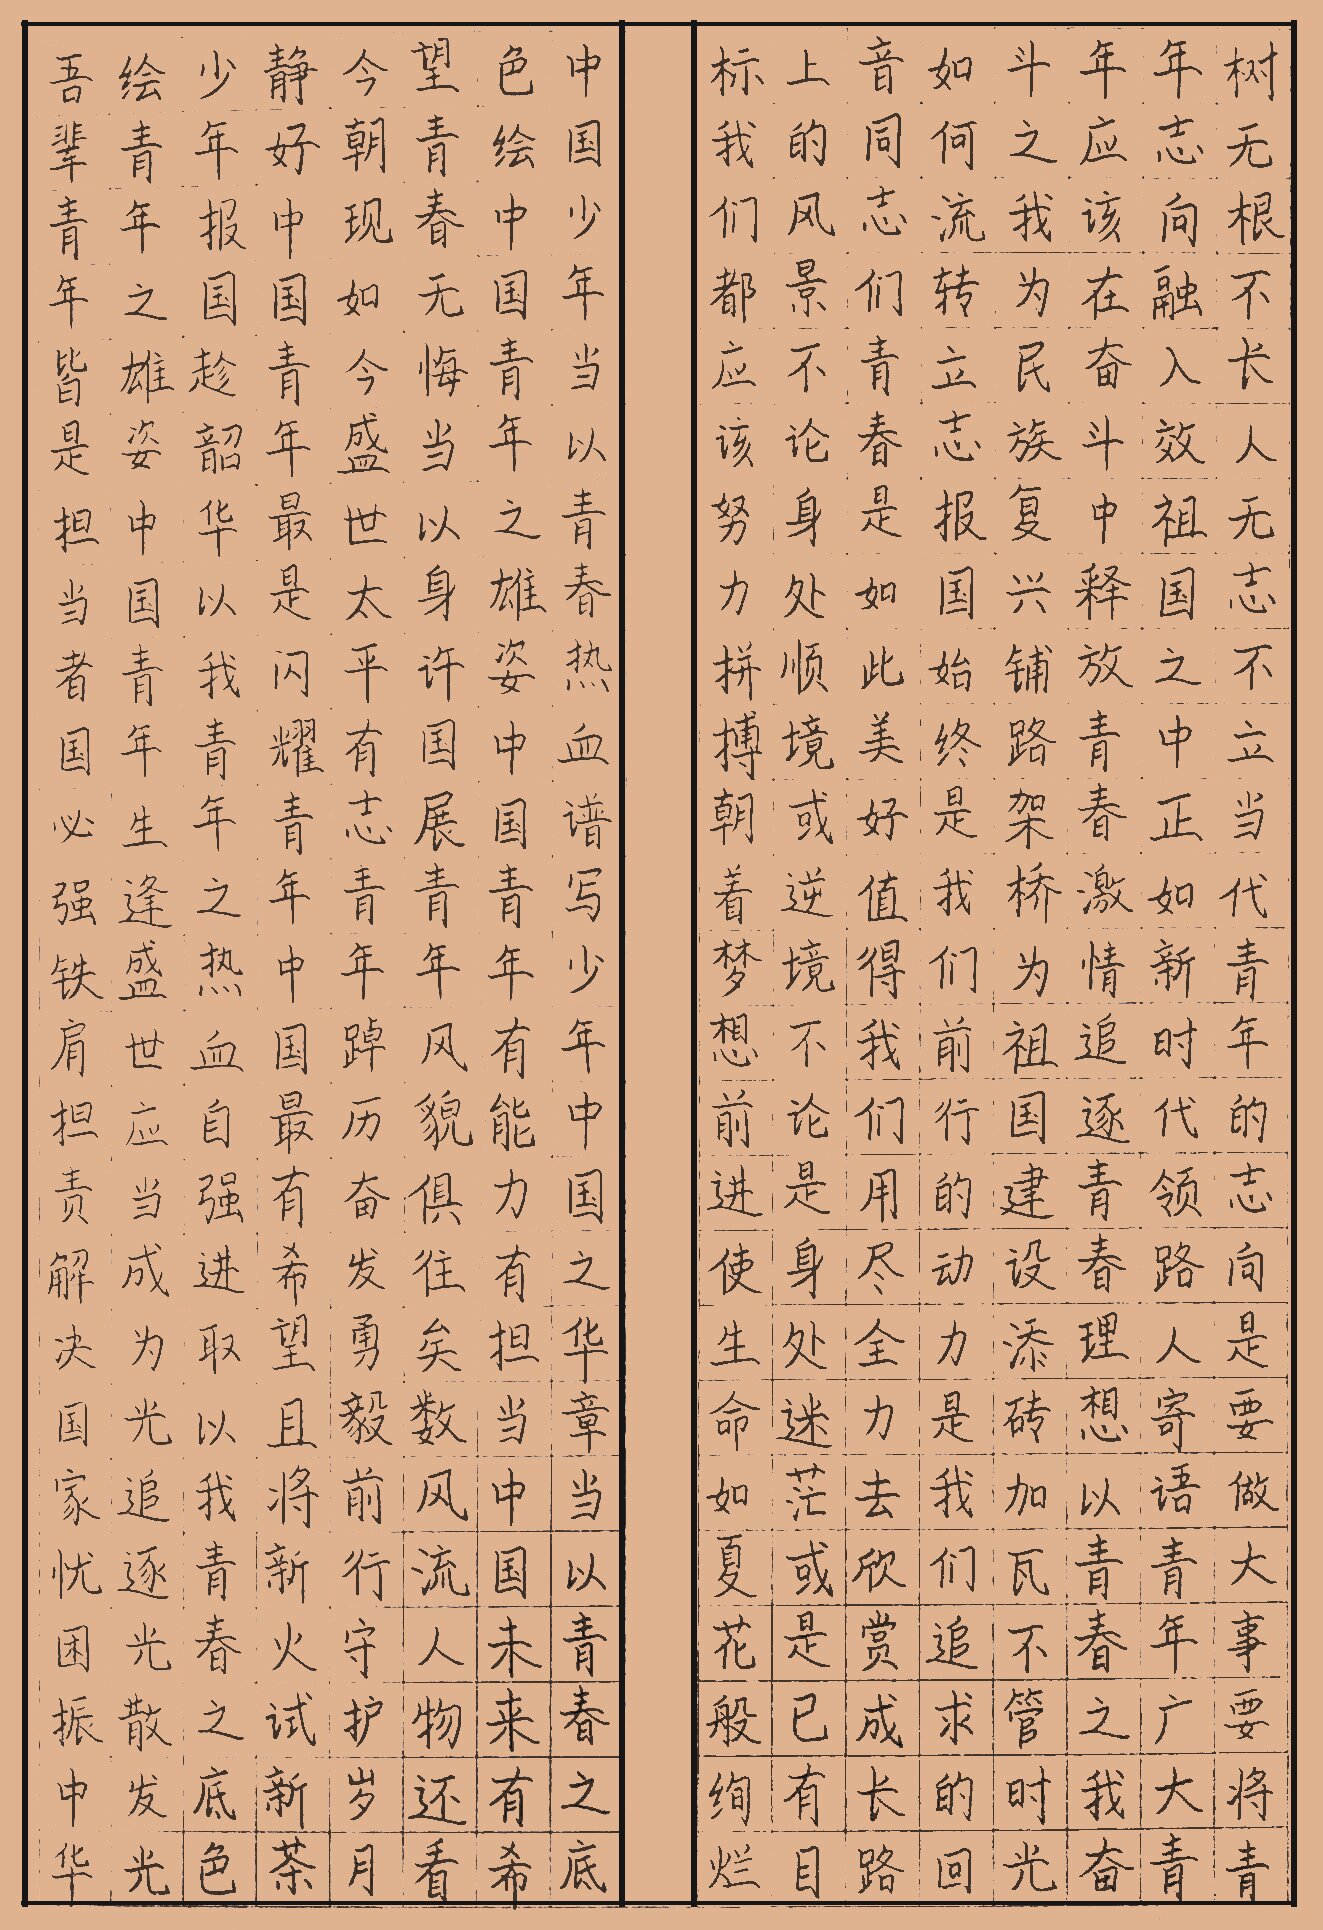 树无根不长人无志不立当代青年的志向是要做大事要将青
年志向融入效祖国之中正如新时代领路人寄语青年广大青
年应该在奋斗中释放青春激情追逐青春理想以青春之我奋
斗之我为民族复兴铺路架桥为祖国建设添砖加瓦不管时光
如何流转立志报国始终是我们前行的动力是我们追求的回
音同志们青春是如此美好值得我们用尽全力去欣赏成长路
上的风景不论身处顺境或逆境不论是身处迷茫或是已有目
标我们都应该努力拼搏朝着梦想前进使生命如夏花般绚烂
中国少年当以青春热血谱写少年中国之华章当以青春之底
色绘中国青年之雄姿中国青年有能力有担当中国未来有希
望青春无悔当以身许国展青年风貌俱往矣数风流人物还看
今朝现如今盛世太平有志青年踔历奋发勇毅前行守护岁月
静好中国青年最是闪耀青年中国最有希望且将新火试新茶
少年报国趁韶华以我青年之热血自强进取以我青春之底色
绘青年之雄姿中国青年生逢盛世应当成为光追逐光散发光
吾辈青年皆是担当者国必强铁肩担责解决国家忧困振中华